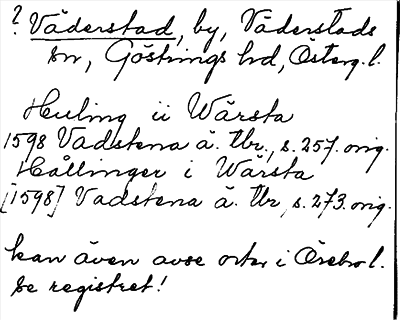 ? Väderstad, by, Väderstads
sn, Göstrings hd, Österg. l.
Huling ii Wärsta
1598 Vadstena ä. tbr., s. 257. orig.
Hällinger i Wärsta
[1598] Vadstena ä. tbr, s. 273. orig.
kan även avse orter i Örebro l.
se registret!